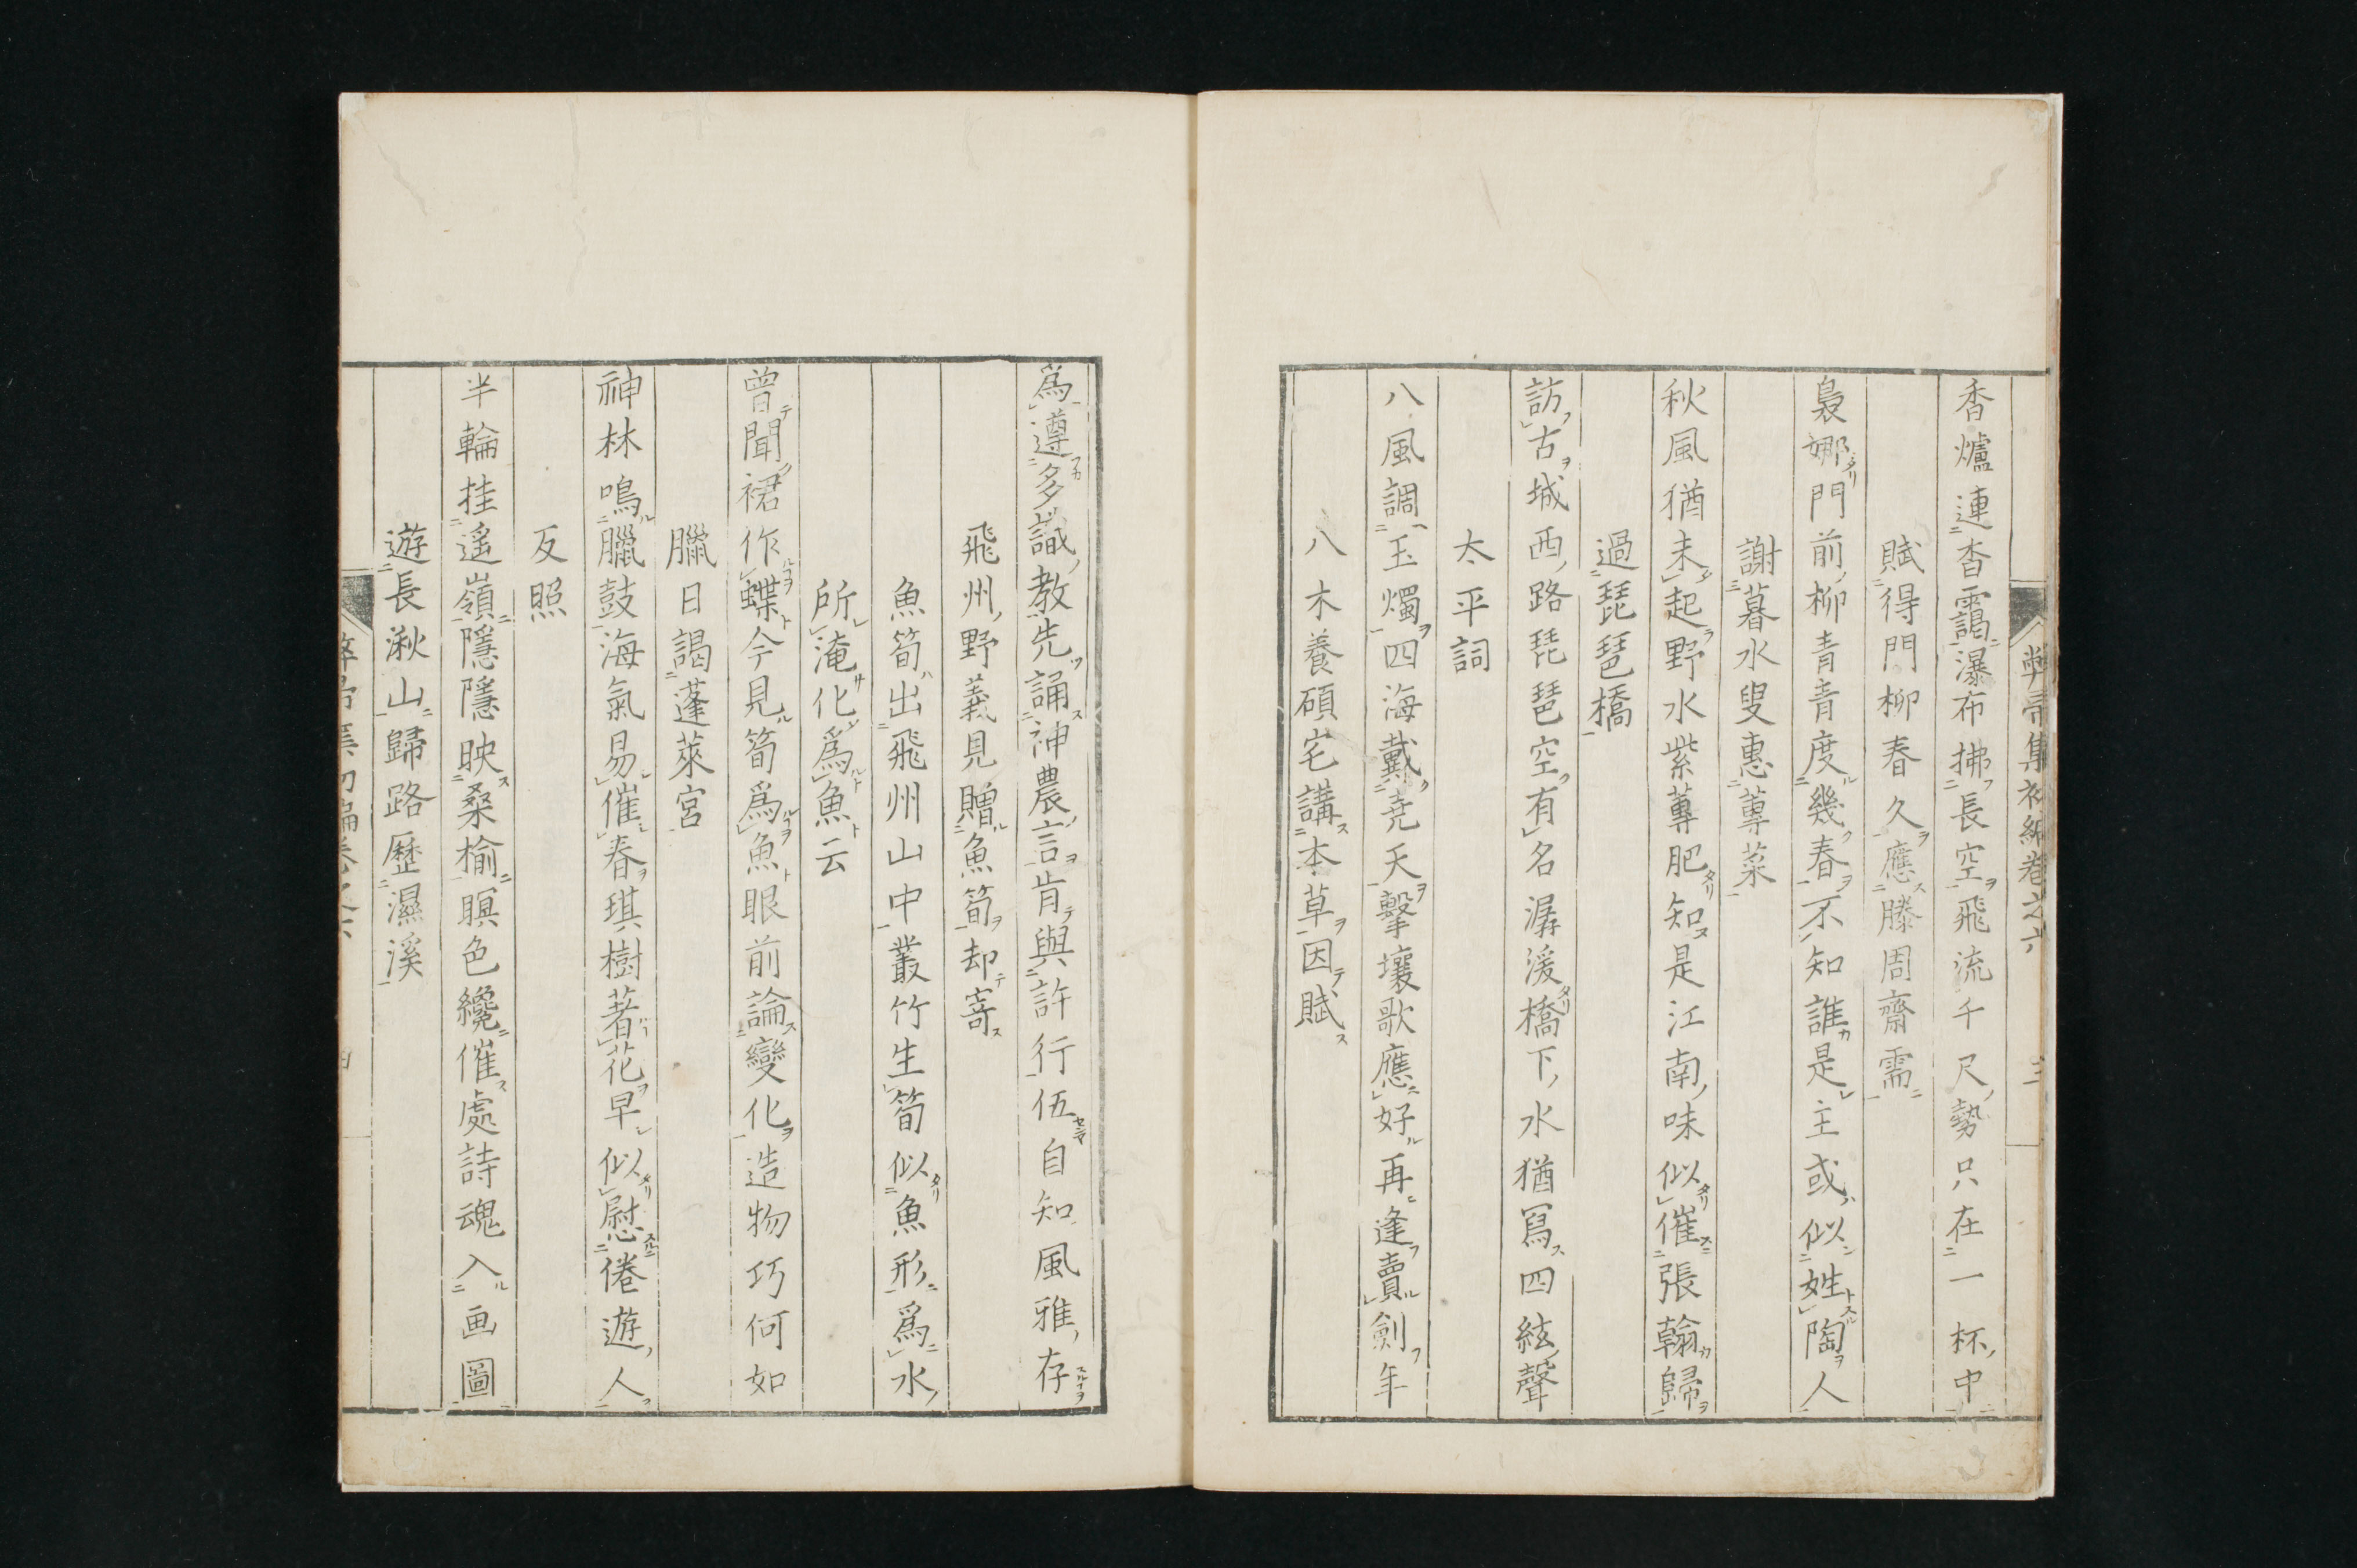 弊帚集初編卷之六 三
香爐連杳靄瀑布拂長空飛流千尺勢只在一杯中
賦得門柳春久應滕周齋需
裊娜門前柳青青度幾春不知誰是主或似姓陶人
謝暮水叟惠蓴菜
秋風猶未起野水紫蓴肥知是江南味似催張翰歸
過琵琶橋
訪古城西路琵琶空有名潺湲橋下水猶寫四絃聲
太平詞
八風調玉燭四海戴堯天擊壤歌應好再逢賣劍年
八木養碩宅講本草因賦
爲遵多識教先誦神農言肯與許行伍自知風雅存
飛州野義見贈魚筍却寄
魚筍出飛州山中叢竹生筍似魚形爲水
所淹化爲魚云
曾聞裙作蝶今見筍爲魚眼前論變化造物巧何如
臘日謁蓬萊宮
神林鳴臘鼓海氣易催春琪樹著花早似慰倦遊人
反照
半輪挂遙嶺隱隱映桑榆瞑色纔催處詩魂入画圖
遊長湫山歸路歷濕溪